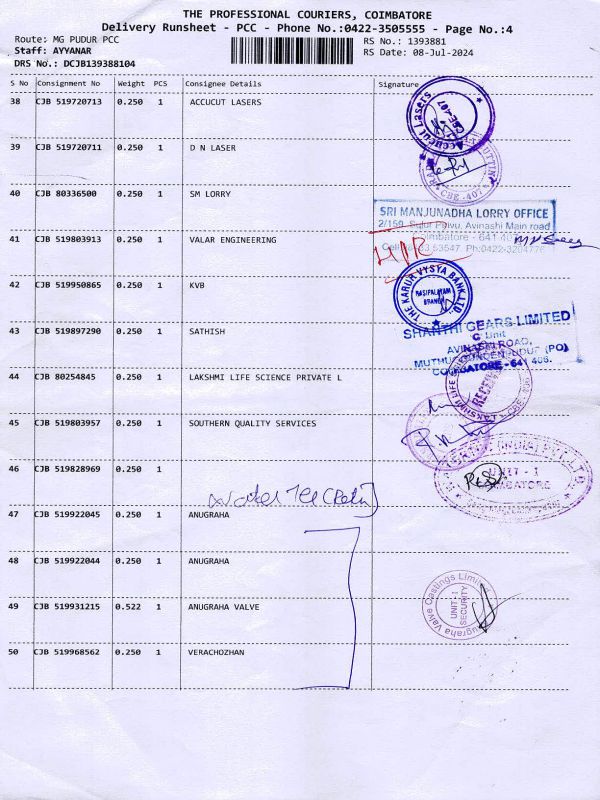 THE PROFESSIONAL COURIERS, COIMBATORE
Delivery Runsheet - PCC - Phone No.:0422-3505555 - Page No.:4
Route: MG PUDUR PCC
RS No.: 1393881
Staff: AYYANAR
RS Date: 08-Jul-2024
DRS No.: DCJB139388104
S No Consignment No Weight PCS Consignee Details Signature
38 CJB 519720713 0.250 1 ACCUCUT LASERS
Accucut Lasers
CBE-407
39 CJB 519720711 0.250 1 D N LASER
CBE - 407
40 CJB 80336500 0.250 1 SM LORRY
SRI MANJUNADHA LORRY OFFICE
2/150, Sulur Pirivu, Avinashi Main road
Coimbatore - 641 40
41 CJB 519803913 0.250 1 VALAR ENGINEERING
42 CJB 519950865 0.250 1 KVB
THE KARUR VYSYA BANK LTD.
RASIPALAYAM
BRANCH
43 CJB 519897290 0.250 1 SATHISH
SHANTHI GEARS LIMITED
C Unit
AVINASHI ROAD,
COIMBATORE - 641 406.
44 CJB 80254845 0.250 1 LAKSHMI LIFE SCIENCE PRIVATE L
LAKSHMI LIFE
RECEIVED
45 CJB 519803957 0.250 1 SOUTHERN QUALITY SERVICES
46 CJB 519828969 0.250 1
UNIT - I
COIMBATORE
47 CJB 519922045 0.250 1 ANUGRAHA
48 CJB 519922044 0.250 1 ANUGRAHA
49 CJB 519931215 0.522 1 ANUGRAHA VALVE
Anugraha Valve Castings Limited
UNIT-I
SECURITY
50 CJB 519968562 0.250 1 VERACHOZHAN